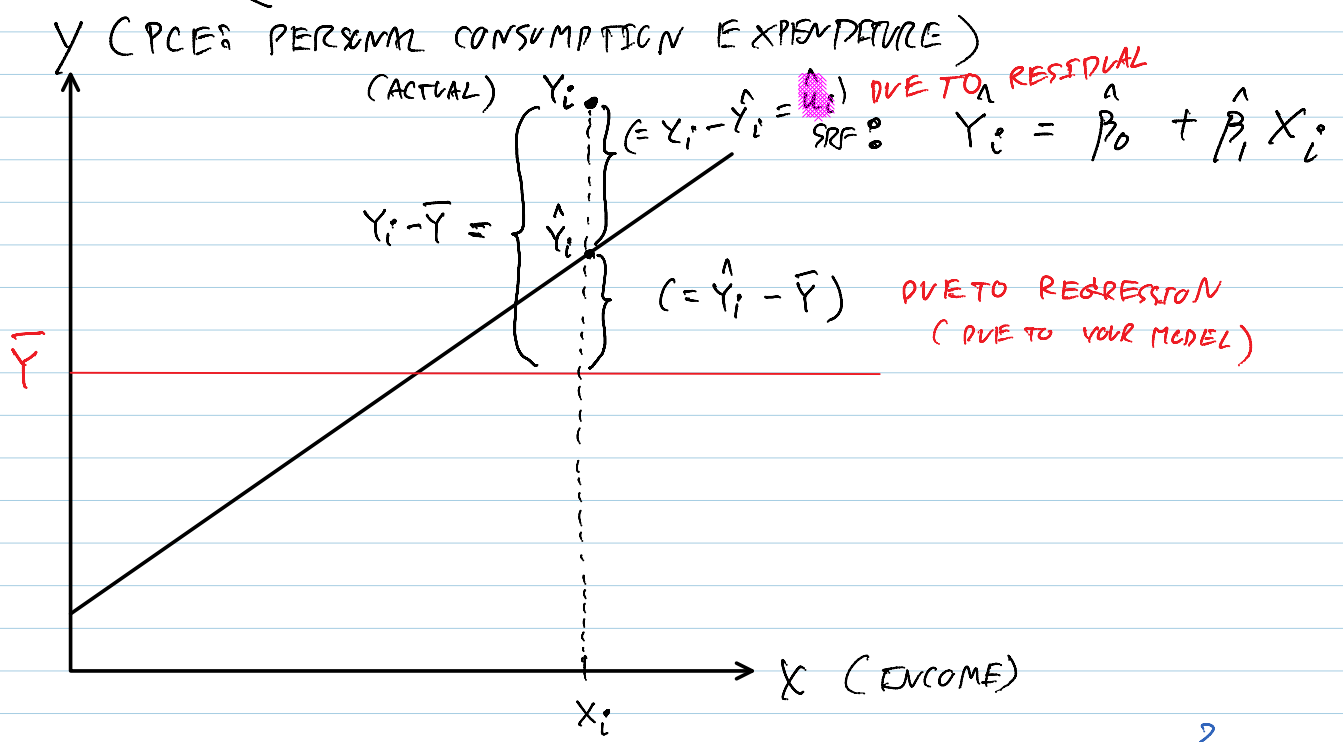 Y (PCE: PERSONAL CONSUMPTION EXPENDITURE)
(ACTUAL) Yᵢ
(= Yᵢ - Ŷᵢ = ûᵢ) DUE TO RESIDUAL
SRF: Ŷᵢ = β̂₀ + β̂₁ Xᵢ
Yᵢ - Ȳ =
Ŷᵢ
(= Ŷᵢ - Ȳ) DUE TO REGRESSION
(DUE TO YOUR MODEL)
Ȳ
X (INCOME)
Xᵢ